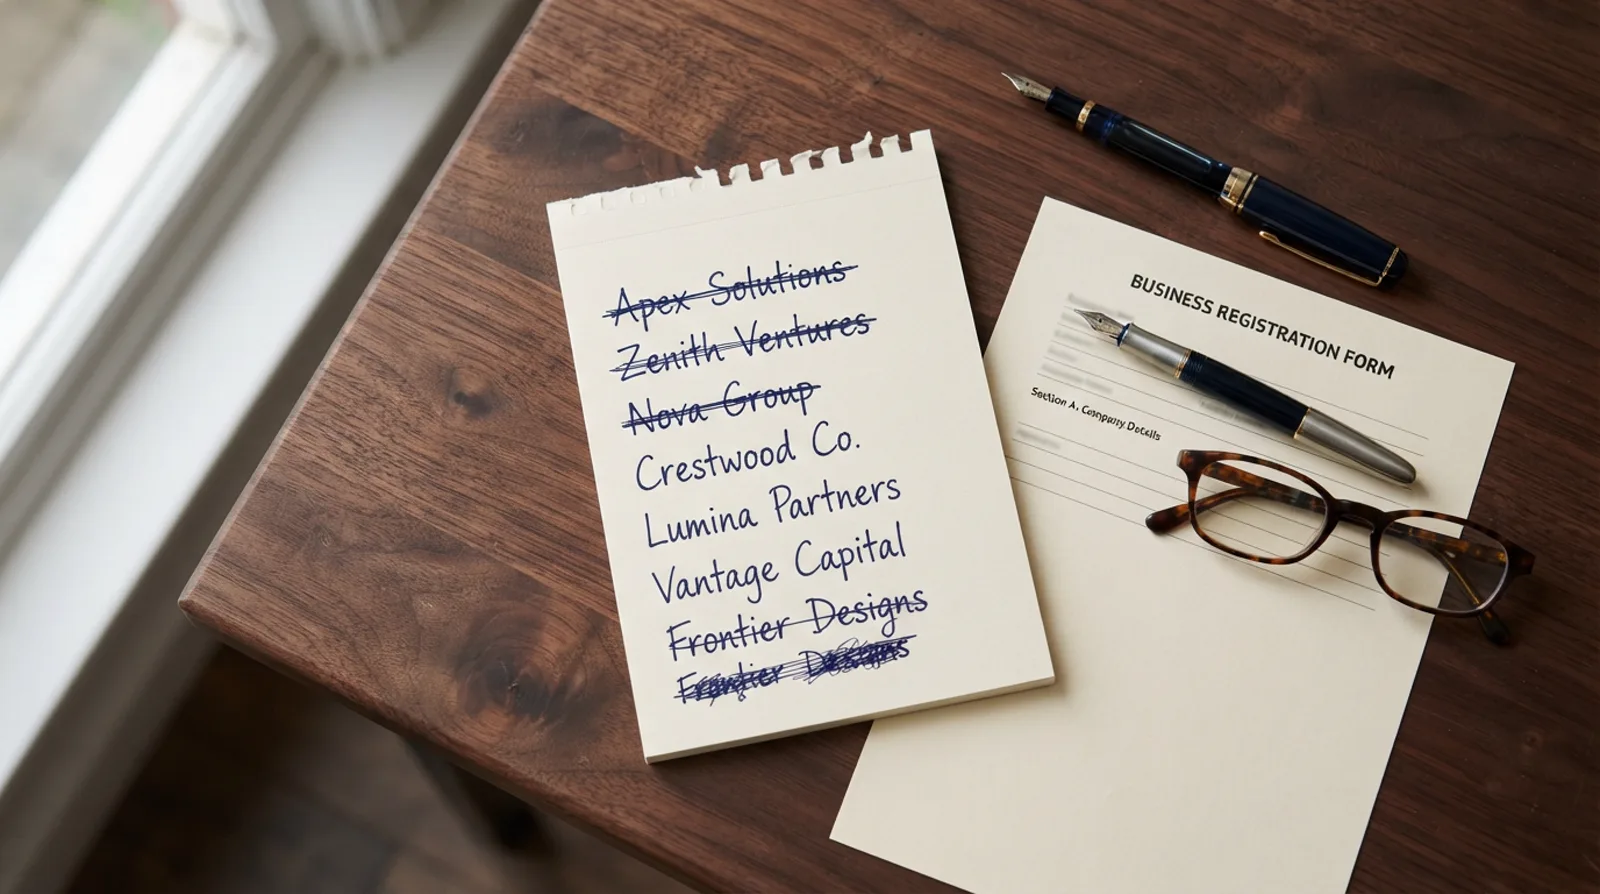 Apex Solutions
Zenith Ventures
Nova Group
Crestwood Co.
Lumina Partners
Vantage Capital
Frontier Designs
Frontier Designs
BUSINESS REGISTRATION FORM
Section A. Company Details